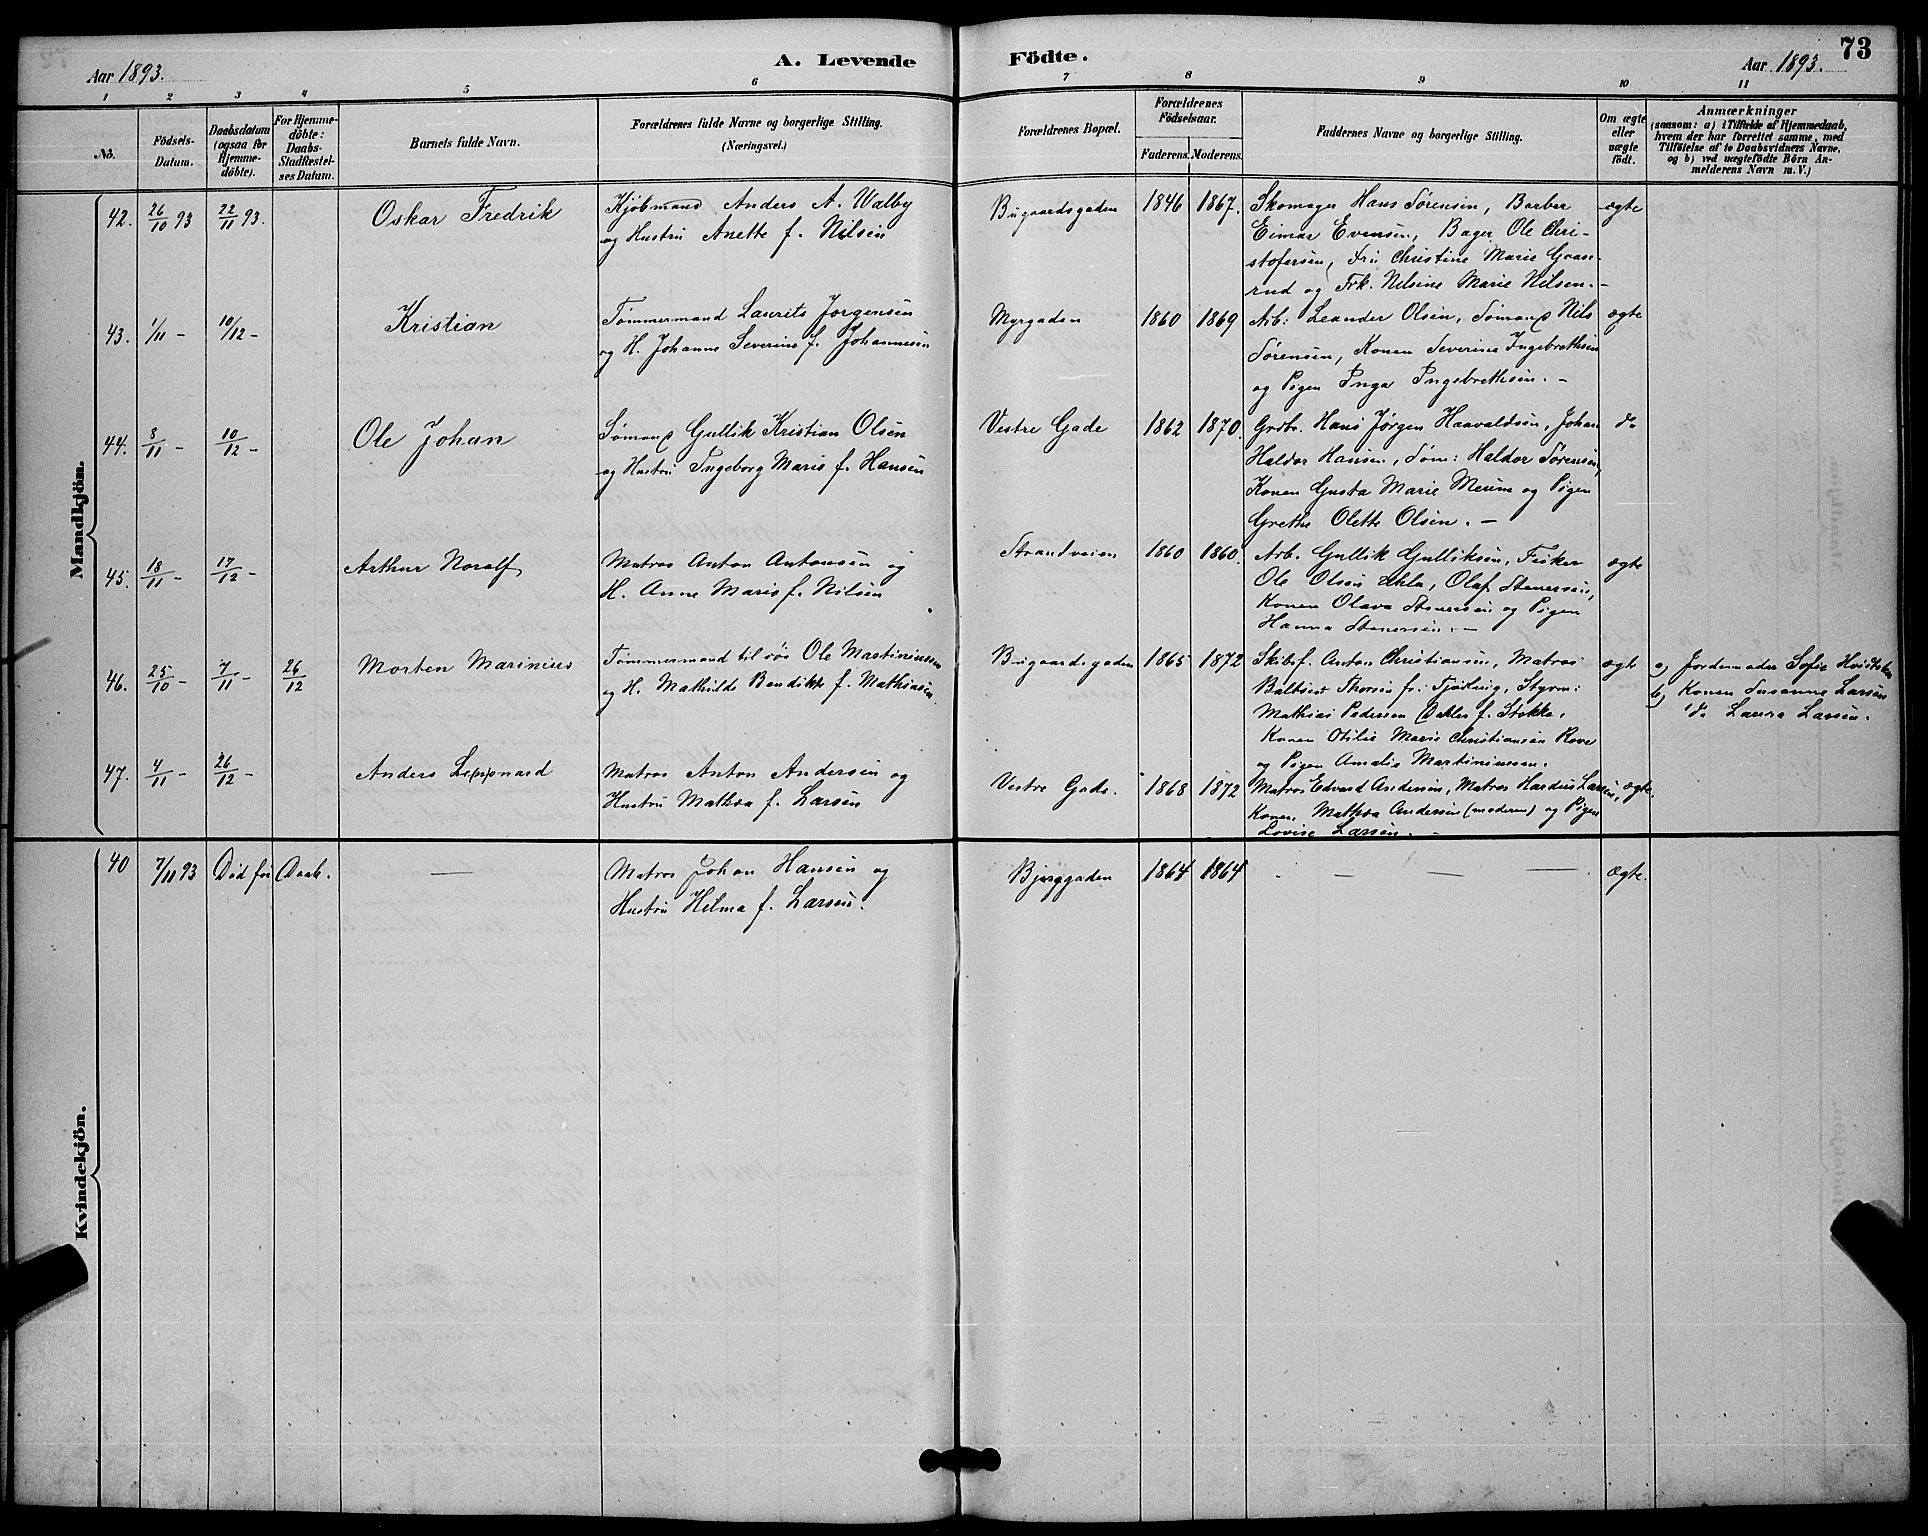 Aar 1893.
A. Levende
Födte.
Aar 1893.
73
1 2 3 4 5 6 7 8 9 10 11
No.
Födsels-
Datum.
Daabsdatum
(ogsaa for
Hjemme-
döbte).
For Hjemme-
döbte:
Daabs-
Stadfæstel-
ses Datum.
Barnets fulde Navn.
Forældrenes fulde Navne og borgerlige Stilling.
(Næringsvei.)
Forældrenes Bopæl.
Forældrenes
Födselsaar.
Faderens. Moderens.
Faddernes Navne og borgerlige Stilling.
Om ægte
eller
uægte
födt.
Anmærkninger
(saasom: a) i Tilfælde af Hjemmedaab,
hvem der har forrettet samme, med
Tilföielse af to Daabsvidners Navne,
og b) ved uægtefödte Börn An-
melderens Navn m. V.)
Mandkjön.
42. 26/10 93 22/11 93. Oskar Fredrik
Kjöbmand Anders A. Walby
og Hustru Anette f. Nilsen
Bugaardsgaden 1846 1867.
Skomager Hans Sørensen, Barber
Eimar Evensen, Bager Ole Chri-
stofersen, Fru Christine Marie Graas-
rud og Frk. Nilsine Marie Nilsen. -
ægte
43. 1/11 - 10/12 - Kristian
Tømmermand Laurits Jørgensen
og H. Johanne Severine f. Johannesen
Myrgaden 1860 1869
Arb: Leander Olsen, Sømand Nils
Sørensen, Konen Severine Ingebrethsen
og Pigen Inga Ingebrethsen. -
ægte
44. 8/11 - 10/12 - Ole Johan
Sømand Gullik Kristian Olsen
og Hustru Ingeborg Marie f. Hansen
Vestre Gade 1862 1870.
Grdbr. Hans Jørgen Haavaldsen, Johan
Haldor Hansen, Søm: Haldor Sørensen,
Konen Gusta Marie Merum og Pigen
Grethe Olette Olsen. -
do
45. 18/11 - 17/12 - Arthur Noralf
Matros Anton Antonsen og
H. Anne Marie f. Nilsen
Strandveien 1860 1860.
Arb. Gullik Gulliksen, Fisker
Ole Olsen, Olaf Stenersen,
Konen Olava Stenersen og Pigen
Hanna Stenersen. -
ægte
46. 25/10 - 7/11 - 26/12 Morten Marinius
Tømmermand til søs Ole Martiniussen
og H. Mathilde Bendikte f. Mathiasen.
Bugaardsgaden 1865 1872
Skibsf. Anton Christiansen, Matros
Baltser Thorsen fr. Tjøling, Styrm:
Mathias Pedersen f. Stokke,
Konen Otilie Marie Christiansen Rove
og Pigen Amalie Martiniussen.
ægte
a) Jordemoder Sofie Hvidsten
b) Konen Susanne Larsen
do Laura Larsen.
47. 4/11 - 26/12 - Anders Le(n)onard
Matros Anton Andersen og
Hustru Mathea f. Larsen
Vestre Gade. 1868 1872
Matros Edvard Andersen, Matros Hardus Larsen,
Konen Mathea Andersen (moderen) og Pigen
Lovise Larsen. -
ægte.
Kvindekjön.
40 7/11 93 Död før Daab. —
Matros Johan Hansen og
Hustru Hilma f. Larsen.
Bjerggaden 1864 1864
- — — — -
Ægte.